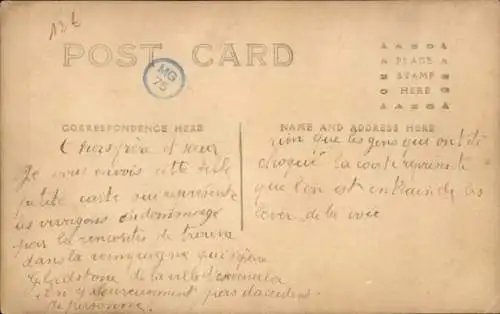 12 t
POST CARD
MG
75
PLACE
STAMP
HERE
CORRESPONDENCE HERE
Chers frere et seur
Je vous envois cette
petite carte qui represente
les wagons endommagé
par la rencontre de
dans la
Gladstone de la ville d
il n y heureusement pas d'accident
de personne
NAME AND ADDRESS HERE
rien que les gens qui ont été
choqué la carte represente
que l'on est entrain de les
lever de la voie